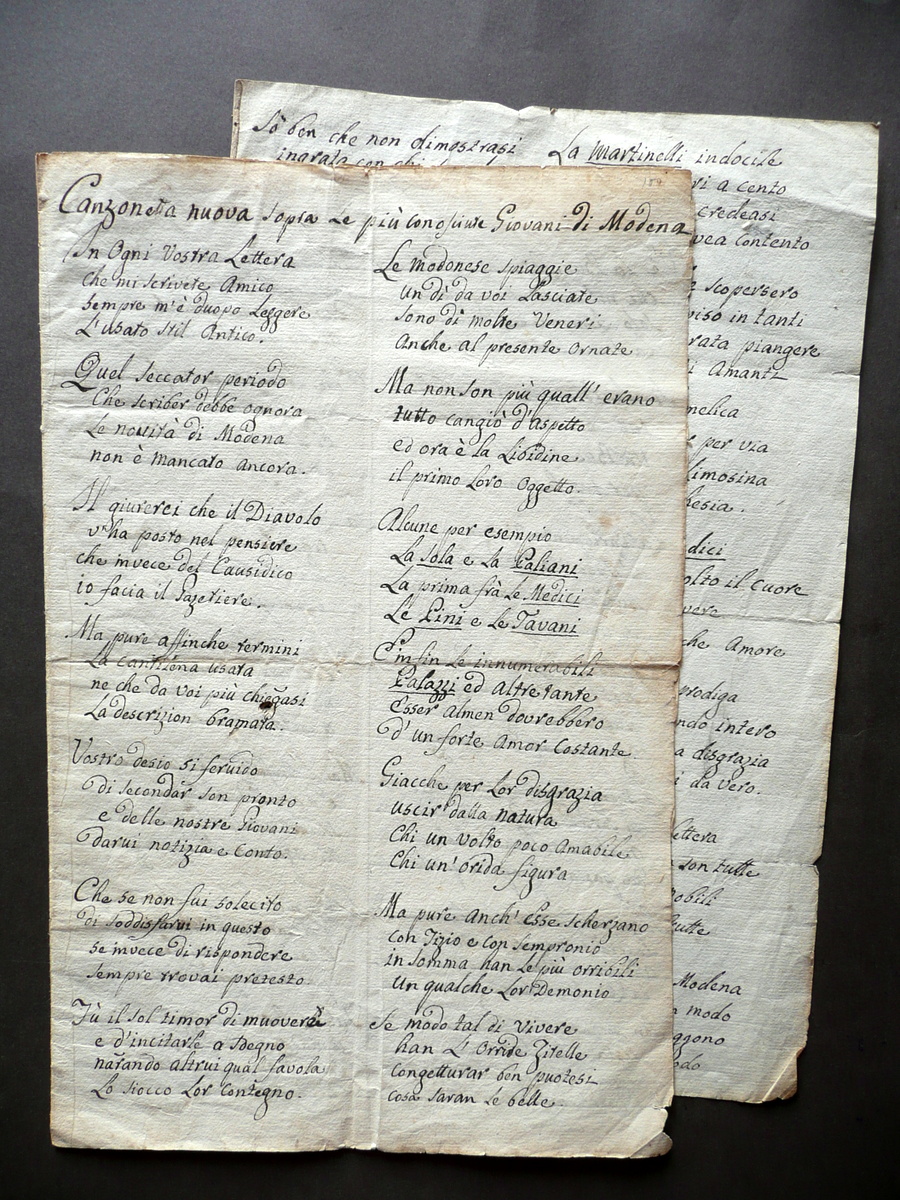 Canzoneta nuova sopra Le più conosiute Giovani di Modena
In Ogni Vostra Lettera
che mi scrivete Amico
sempre m'è duopo Leggere
L'usato stil Antico.
Quel seccator periodo
Che scriber debbe ognora
Le novità di Modena
non è mancato ancora.
Il giurerei che il Diavolo
v'ha posto nel pensiere
che invece del Causidico
io facia il Gazetiere.
Ma pure affinche termini
La cantilena usata
ne che da voi più chieggasi
La descrizion bramata.
Vostro desio si fervido
di secondar son pronto
e delle nostre Giovani
darvi notizia e Conto.
Che se non fui solecito
di soddisfarvi in questo
se invece di rispondere
sempre trovai pretesto
Fù il sol timor di muoverle
e d'incitarle a sdegno
narando altrui qual favola
Lo siocco Lor Contegno.
Le modonese spiaggie
un dì da voi Lasciate
sono di molte Veneri
Anche al presente Ornate
Ma non son più quall' erano
tutto cangiò d'aspetto
ed ora è la Libidine
il primo Loro Oggetto.
Alcune per esempio
La Sola e La Galiani
La prima frà Le Medici
Le Pini e Le Tavani
E infin Le innumerabili
Palazzi ed altre tante
Esser almen dovrebbero
d'un forte Amor Costante
Giacche per Lor disgrazia
uscir dalla natura
Chi un Volto poco Amabile
Chi un'orida figura
Ma pure Anch' Esse scherzano
con Tizio e con sempronio
in somma han Le più orribili
Un qualche Lor Demonio
Se modo tal di Vivere
han L'Orride Zitelle
Congetturar ben puotesi
cosa saran Le belle.
Sò ben che non dimostrasi
ingrata con chi
La Martinelli indocile
a cento
credeasi
contento
scopersero
in tanti
piangere
Amanti
per via
Limosina
il Cuore
che Amore
prodiga
intero
disgrazia
da vero.
son tutte
Modena
modo